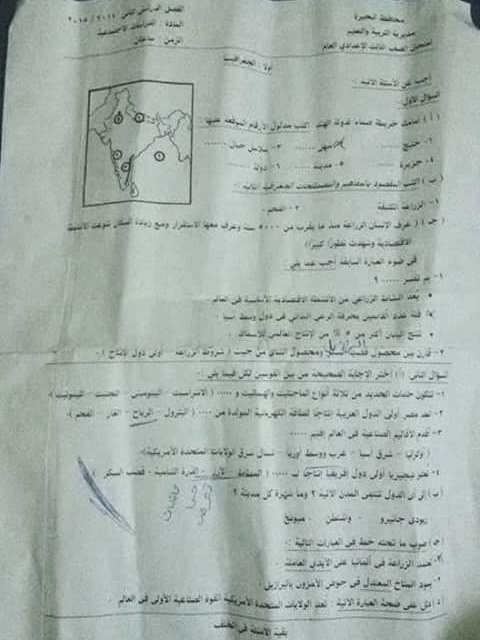 محافظة البحيرة
مديرية التربية والتعليم
امتحان الصف الثالث الإعدادى العام
الفصل الدراسى الثانى ٢٠١٤ / ٢٠١٥
المادة: الدراسات الاجتماعية
الزمن: ساعتان
أولا: الجغرافيا
أجب عن الأسئلة الآتية:
السؤال الأول
( أ ) أمامك خريطة صماء لدولة الهند اكتب مدلول الأرقام الموقعة عليها
١- خليج ...... ٢- نهر ...... ٣- سلاسل جبال ......
٤- جزيرة ...... ٥- مدينة ...... ٦- دولة ......
(ب) اكتب المقصود بالمفاهيم والمصطلحات الجغرافية التالية:
١- الزراعة الكثيفة ٢- الفحم
(جـ) ( عرف الإنسان الزراعة منذ ما يقرب من ٥٠٠٠ سنة وعرف معها الاستقرار ومع زيادة السكان تنوعت الأنشطة
الاقتصادية وشهدت تطورًا كبيرًا)
فى ضوء العبارة السابقة أجب عما يلى:
١- بم تفسر ...... ؟
يعد النشاط الزراعى من الأنشطة الاقتصادية الأساسية فى العالم.
قلة عدد العاملين بحرفة الرعى البدائى فى دول وسط آسيا
تنتج اليابان أكثر من ٥ ٪ من الإنتاج العالمى للأسماك.
٢- قارن بين محصول قصب السكر ومحصول الشاى من حيث ( شروط الزراعة - أولى دول الإنتاج ).
السؤال الثانى: (أ) اختر الإجابة الصحيحة من بين القوسين لكل فيما يلى:
١- تتكون خامات الحديد من ثلاثة أنواع الماجنتيت والهيماتيت و ..... ( الانتراسيت - البيتومينى - اللجنيت - الليمونيت )
٢- تعد مصر أولى الدول العربية إنتاجًا للطاقة الكهربائية المولدة من .... ( البترول - الرياح - الغاز - الفحم )
٣- أقدم الأقاليم الصناعية فى العالم إقليم ....
( أوكرانيا - شرق آسيا - غرب ووسط أوربا - شمال شرق الولايات المتحدة الأمريكية)
٤- تعتبر نيجيريا أولى دول إفريقيا إنتاجًا لـ ..... ( - الأرز - الذرة الشامية - قصب السكر )
(ب) إلى أى الدول تنتمى المدن الآتية ؟ وما شهرة كل مدينة ؟
ريودى جانيرو - واشنطن - ميونخ
(جـ) صوب ما تحته خط فى العبارات التالية:
١- تعتمد الزراعة فى ألمانيا على الأيدى العاملة.
٢- يسود المناخ المعتدل فى حوض الأمازون بالبرازيل.
(د) دلل على صحة العبارة الآتية: تعد الولايات المتحدة الأمريكية القوة الصناعية الأولى فى العالم.
بقية الأسئلة فى الخلف